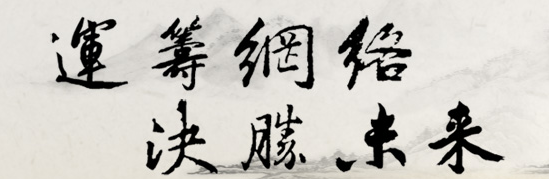 運籌網絡
決勝未来